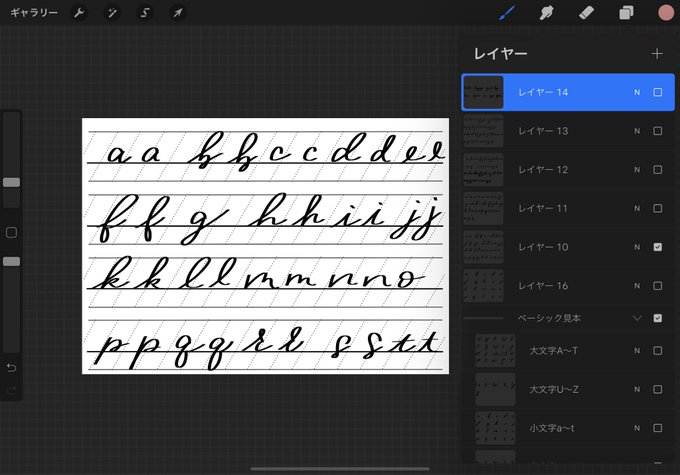 ギャラリー
レイヤー
レイヤー 14 N
レイヤー 13 N
レイヤー 12 N
レイヤー 11 N
レイヤー 10 N
レイヤー 16 N
ベーシック見本
大文字A〜T N
大文字U〜Z N
小文字a〜t N
a a b b c c d d e e
f f g h h i i j j
k k l l m m n n o
p p q q r r s s t t